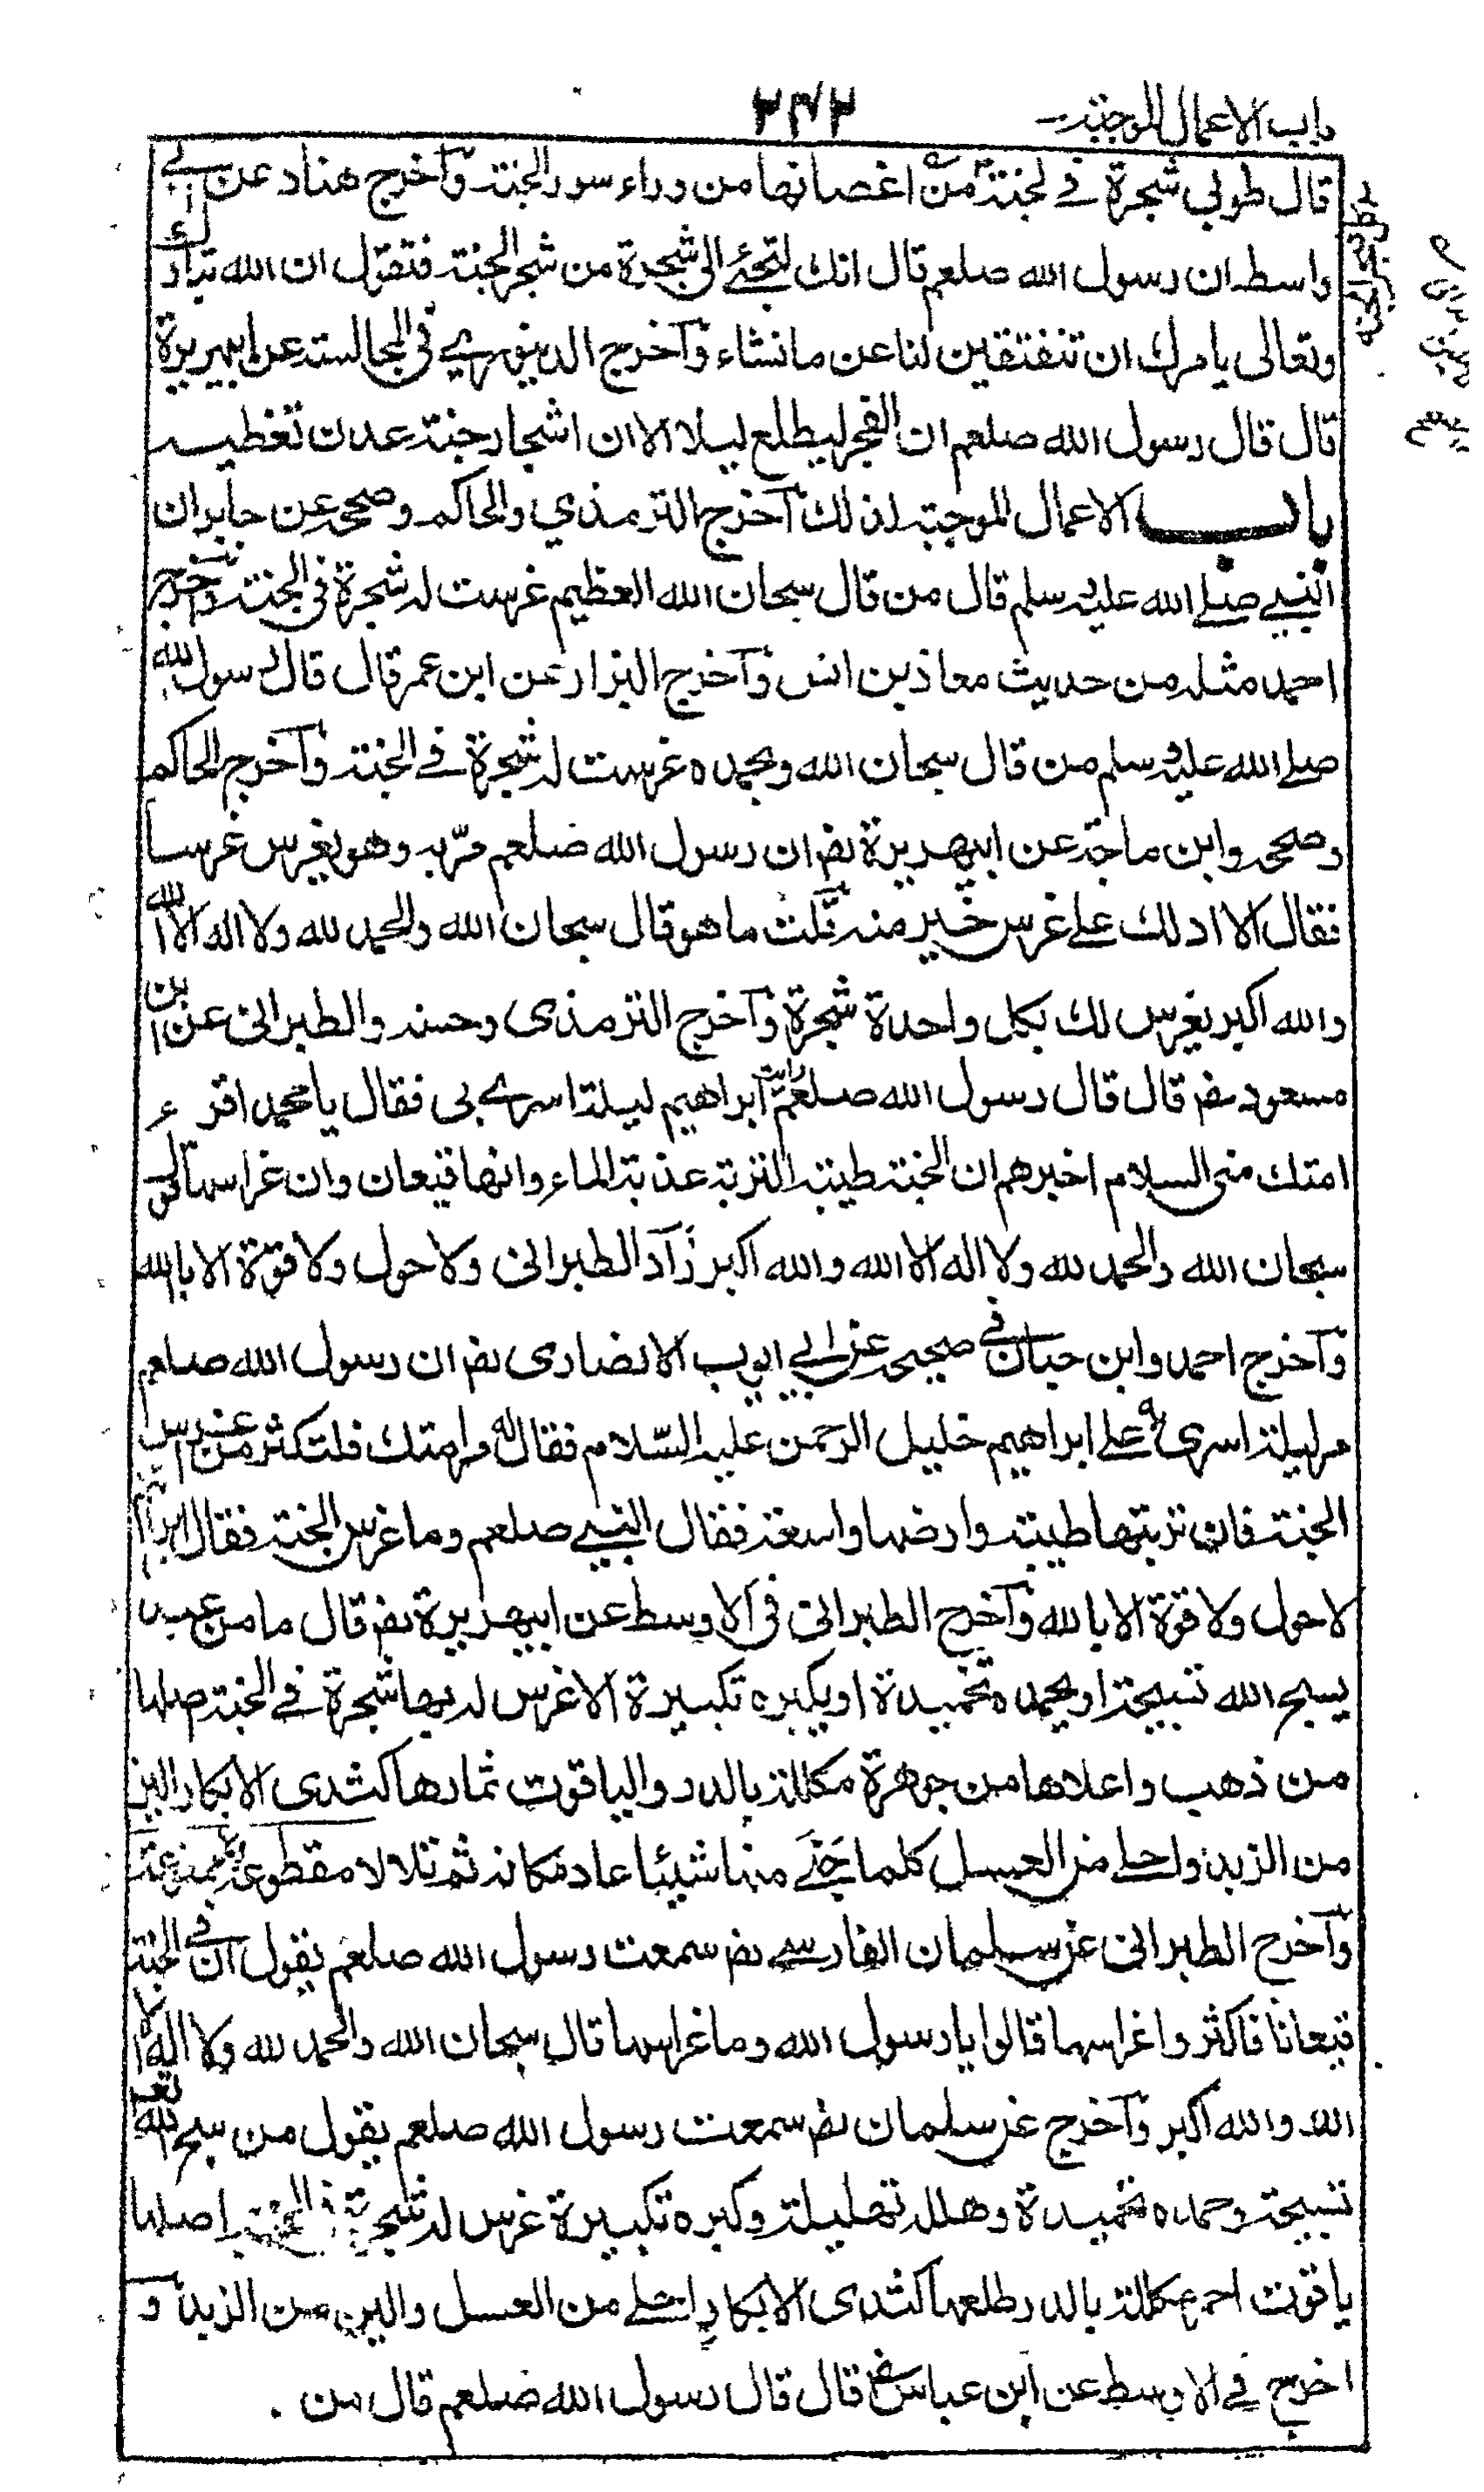 باب الاعمال الموجبة
٢٧٢
قال طوبي شجرة في لجنة من اغصانها من وراء سور الجنة وآخرج هناد عن ابي
واسط ان رسول الله صلعم قال انك لتجئ الى شجرة من شجر الجنة فتقول ان الله تبارك
وتعالى يامرك ان تنفتقين لنا عن مانشاء وآخرج الدينوري في المجالسة عن ابيهريرة
قال قال رسول الله صلعم ان الفجر ليطلع ليلا الا ان اشجار جنة عدن تغطيه
باب الاعمال الموجبة لذلك آخرج الترمذي والحاكم وصححه عن جابر ان
النبي صلے الله عليه وسلم قال من قال سبحان الله العظيم غرست له شجرة فى الجنة وآخرج
احمد مثله من حديث معاذ بن انس وآخرج البزار عن ابن عمر قال قال رسول الله
صلے الله عليه وسلم من قال سبحان الله وبحمده غرست له شجرة في الجنة وآخرج الحاكم
وصححه وابن ماجة عن ابيهريرة رض ان رسول الله صلعم مرّ به وهو يغرس غرسا
فقال الا ادلك على غرس خير منه قلت ما هو قال سبحان الله والحمد لله ولا اله الا الله
والله اكبر يغرس لك بكل واحدة شجرة وآخرج الترمذى وحسنه والطبرانى عن ابن
مسعود رض قال قال رسول الله صلعم رايت ابراهيم ليلة اسرى بى فقال يا محمد اقرء
امتك منى السلام اخبرهم ان الجنة طيبة التربة عذبة الماء وانها قيعان وان غراسها قول
سبحان الله والحمد لله ولا اله الا الله والله اكبر زاد الطبرانى ولا حول ولا قوة الا بالله
وآخرج احمد وابن حبان في صحيحه عن ابي ايوب الانصارى رض ان رسول الله صلعم
مر ليلة اسرى به على ابراهيم خليل الرحمن عليه السّلام فقال له مرامتك فلتكثر من غراس
الجنة فان تربتها طيبة وارضها واسعة فقال النبي صلعم وما غرس الجنة فقال
لا حول ولا قوة الا بالله وآخرج الطبرانى فى الاوسط عن ابيهريرة رض قال ما من عبد
يسبح الله تسبيحة او يحمده تحميدة او يكبره تكبيرة الا غرس له بها شجرة في الجنة اصلها
من ذهب واعلاها من جوهرة مكللة بالدر والياقوت ثمارها كثدى الابكار الين
من الزبد واحلے من العسل كلما جَنَے منها شيئا عاد مكانه ثم تلا لا مقطوعة ولا ممنوعة
وآخرج الطبرانى عن سلمان الفارسے رض سمعت رسول الله صلعم يقول ان في الجنة
قيعانا فاكثروا غراسها قالوا يا رسول الله وما غراسها قال سبحان الله والحمد لله ولا اله الا
الله والله اكبر وآخرج عن سلمان رض سمعت رسول الله صلعم يقول من سبح الله
تسبيحة وحمده تحميدة وهلله تهليلة وكبره تكبيرة غرس له شجرة في الجنة اصلها
ياقوت احمر مكللة بالدر طلعها كثدى الابكار احلے من العسل والين من الزبد و
اخرج في الاوسط عن ابن عباس رض قال قال رسول الله صلعم قال من